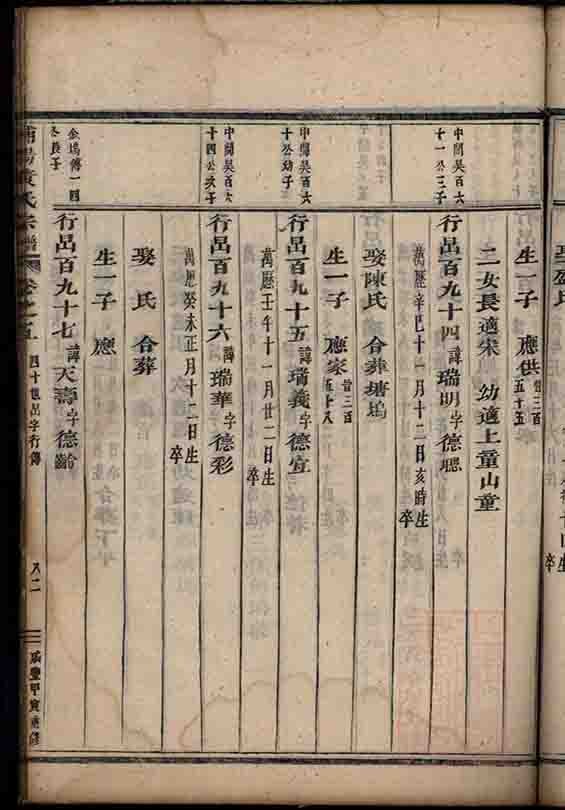 生一子 應供 世三百五十五
二女長適宋 幼適上童山童
中間吳百六十一公三子
行呂百九十四 諱瑞明 字德
萬歷辛巳十一月十二日亥時生 卒
娶陳氏 合葬塘塢
生一子 應家 世三百五十八
中間吳百六十公幼子
行呂百九十五 諱瑞義 字德宣
萬歷壬午十一月廿二日生 卒
中間吳百六十四公次子
行呂百九十六 諱瑞華 字德彩
萬歷癸未正月十二日生 卒
娶 氏 合葬
生一子 應
行呂百九十七 諱天壽 字德齡
黃氏宗譜 卷之五 四十世呂字行傳 八二 咸豐甲寅重修